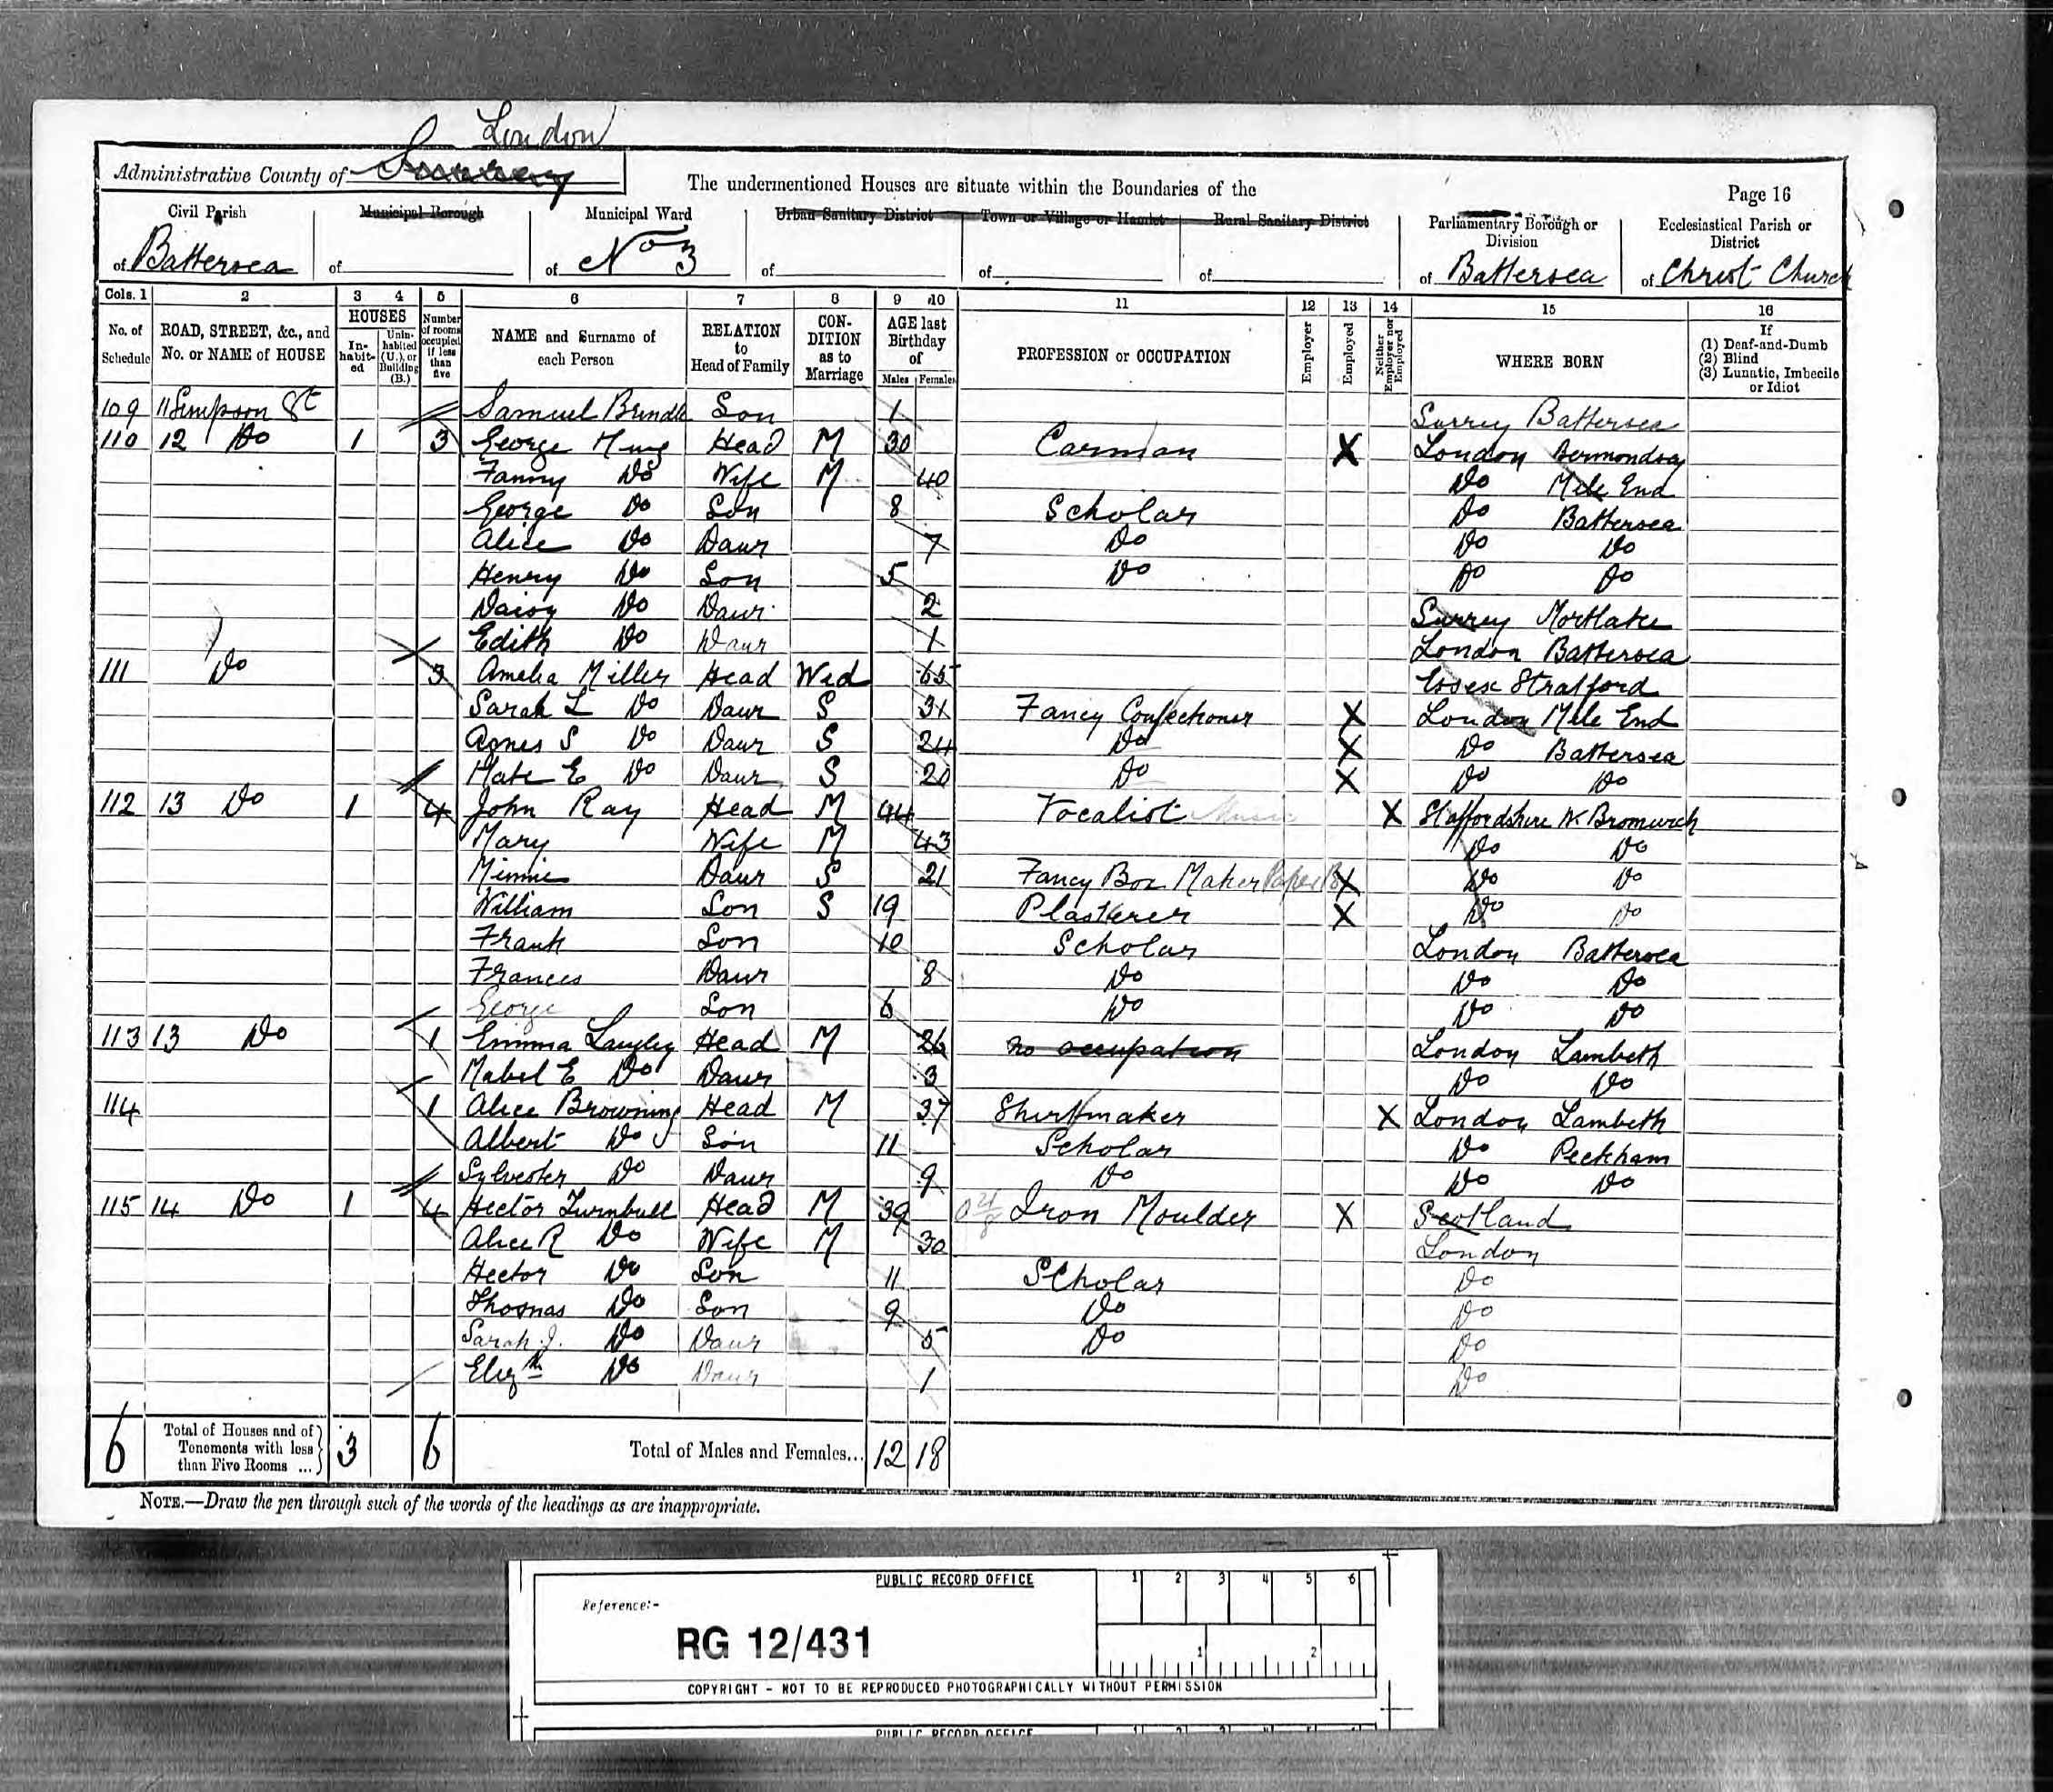 London
Administrative County of Surrey
The undermentioned Houses are situate within the Boundaries of the
Page 16
Civil Parish of Battersea
Municipal Borough of
Municipal Ward of No 3
Urban Sanitary District of
Town or Village or Hamlet of
Rural Sanitary District of
Parliamentary Borough or Division of Battersea
Ecclesiastical Parish or District of Christ Church
Cols. 1 2 3 4 5 6 7 8 9 10 11 12 13 14 15 16
No. of Schedule
ROAD, STREET, &c., and No. or NAME of HOUSE
HOUSES
In-habit-ed
Unin-habited (U.), or Building (B.)
Number of rooms occupied if less than five
NAME and Surname of each Person
RELATION to Head of Family
CON-DITION as to Marriage
AGE last Birthday of
Males Females
PROFESSION or OCCUPATION
Employer
Employed
Neither Employer nor Employed
WHERE BORN
If
(1) Deaf-and-Dumb
(2) Blind
(3) Lunatic, Imbecile or Idiot
109 11 Simpson St Samuel Son 1 Surrey Battersea
110 12 Do 1 3 George Head M 30 Carman X London Bermondsey
Fanny Do Wife M 40 Do Mile End
George Do Son 8 Scholar Do Battersea
Alice Do Daur 7 Do Do Do
Henry Do Son 5 Do Do Do
Daisy Do Daur 2 Surrey Mortlake
Edith Do Daur 1 London Battersea
111 Do 3 Amelia Miller Head Wid 65 Essex Stratford
Sarah L Do Daur S 31 Fancy Confectioner X London Mile End
Agnes S Do Daur S 24 Do X Do Battersea
Kate E Do Daur S 20 Do X Do Do
112 13 Do 1 4 John Ray Head M 44 Vocalist Music X Staffordshire W Bromwich
Mary Wife M 43 Do Do
Minnie Daur S 21 Fancy Box Maker Paper X Do Do
William Son S 19 Plasterer X Do Do
Frank Son 10 Scholar London Battersea
Frances Daur 8 Do Do Do
George Son 6 Do Do Do
113 13 Do 1 Emma Langley Head M 26 No occupation London Lambeth
Mabel E Do Daur 3 Do Do
114 1 Alice Browning Head M 37 Shirtmaker X London Lambeth
Albert Do Son 11 Scholar Do Peckham
Sylvester Do Daur 9 Do Do Do
115 14 Do 1 4 Hector Turnbull Head M 39 Iron Moulder X Scotland
Alice R Do Wife M 30 London
Hector Do Son 11 Scholar Do
Thomas Do Son 9 Do Do
Sarah J. Do Daur 5 Do Do
Elizth Do Daur 1 Do
6 Total of Houses and of Tenements with less than Five Rooms ... 3 6 Total of Males and Females... 12 18
NOTE.—Draw the pen through such of the words of the headings as are inappropriate.
PUBLIC RECORD OFFICE 1 2 3 4 5 6
Reference:-
RG 12/431
1 2
COPYRIGHT - NOT TO BE REPRODUCED PHOTOGRAPHICALLY WITHOUT PERMISSION
PUBLIC RECORD OFFICE